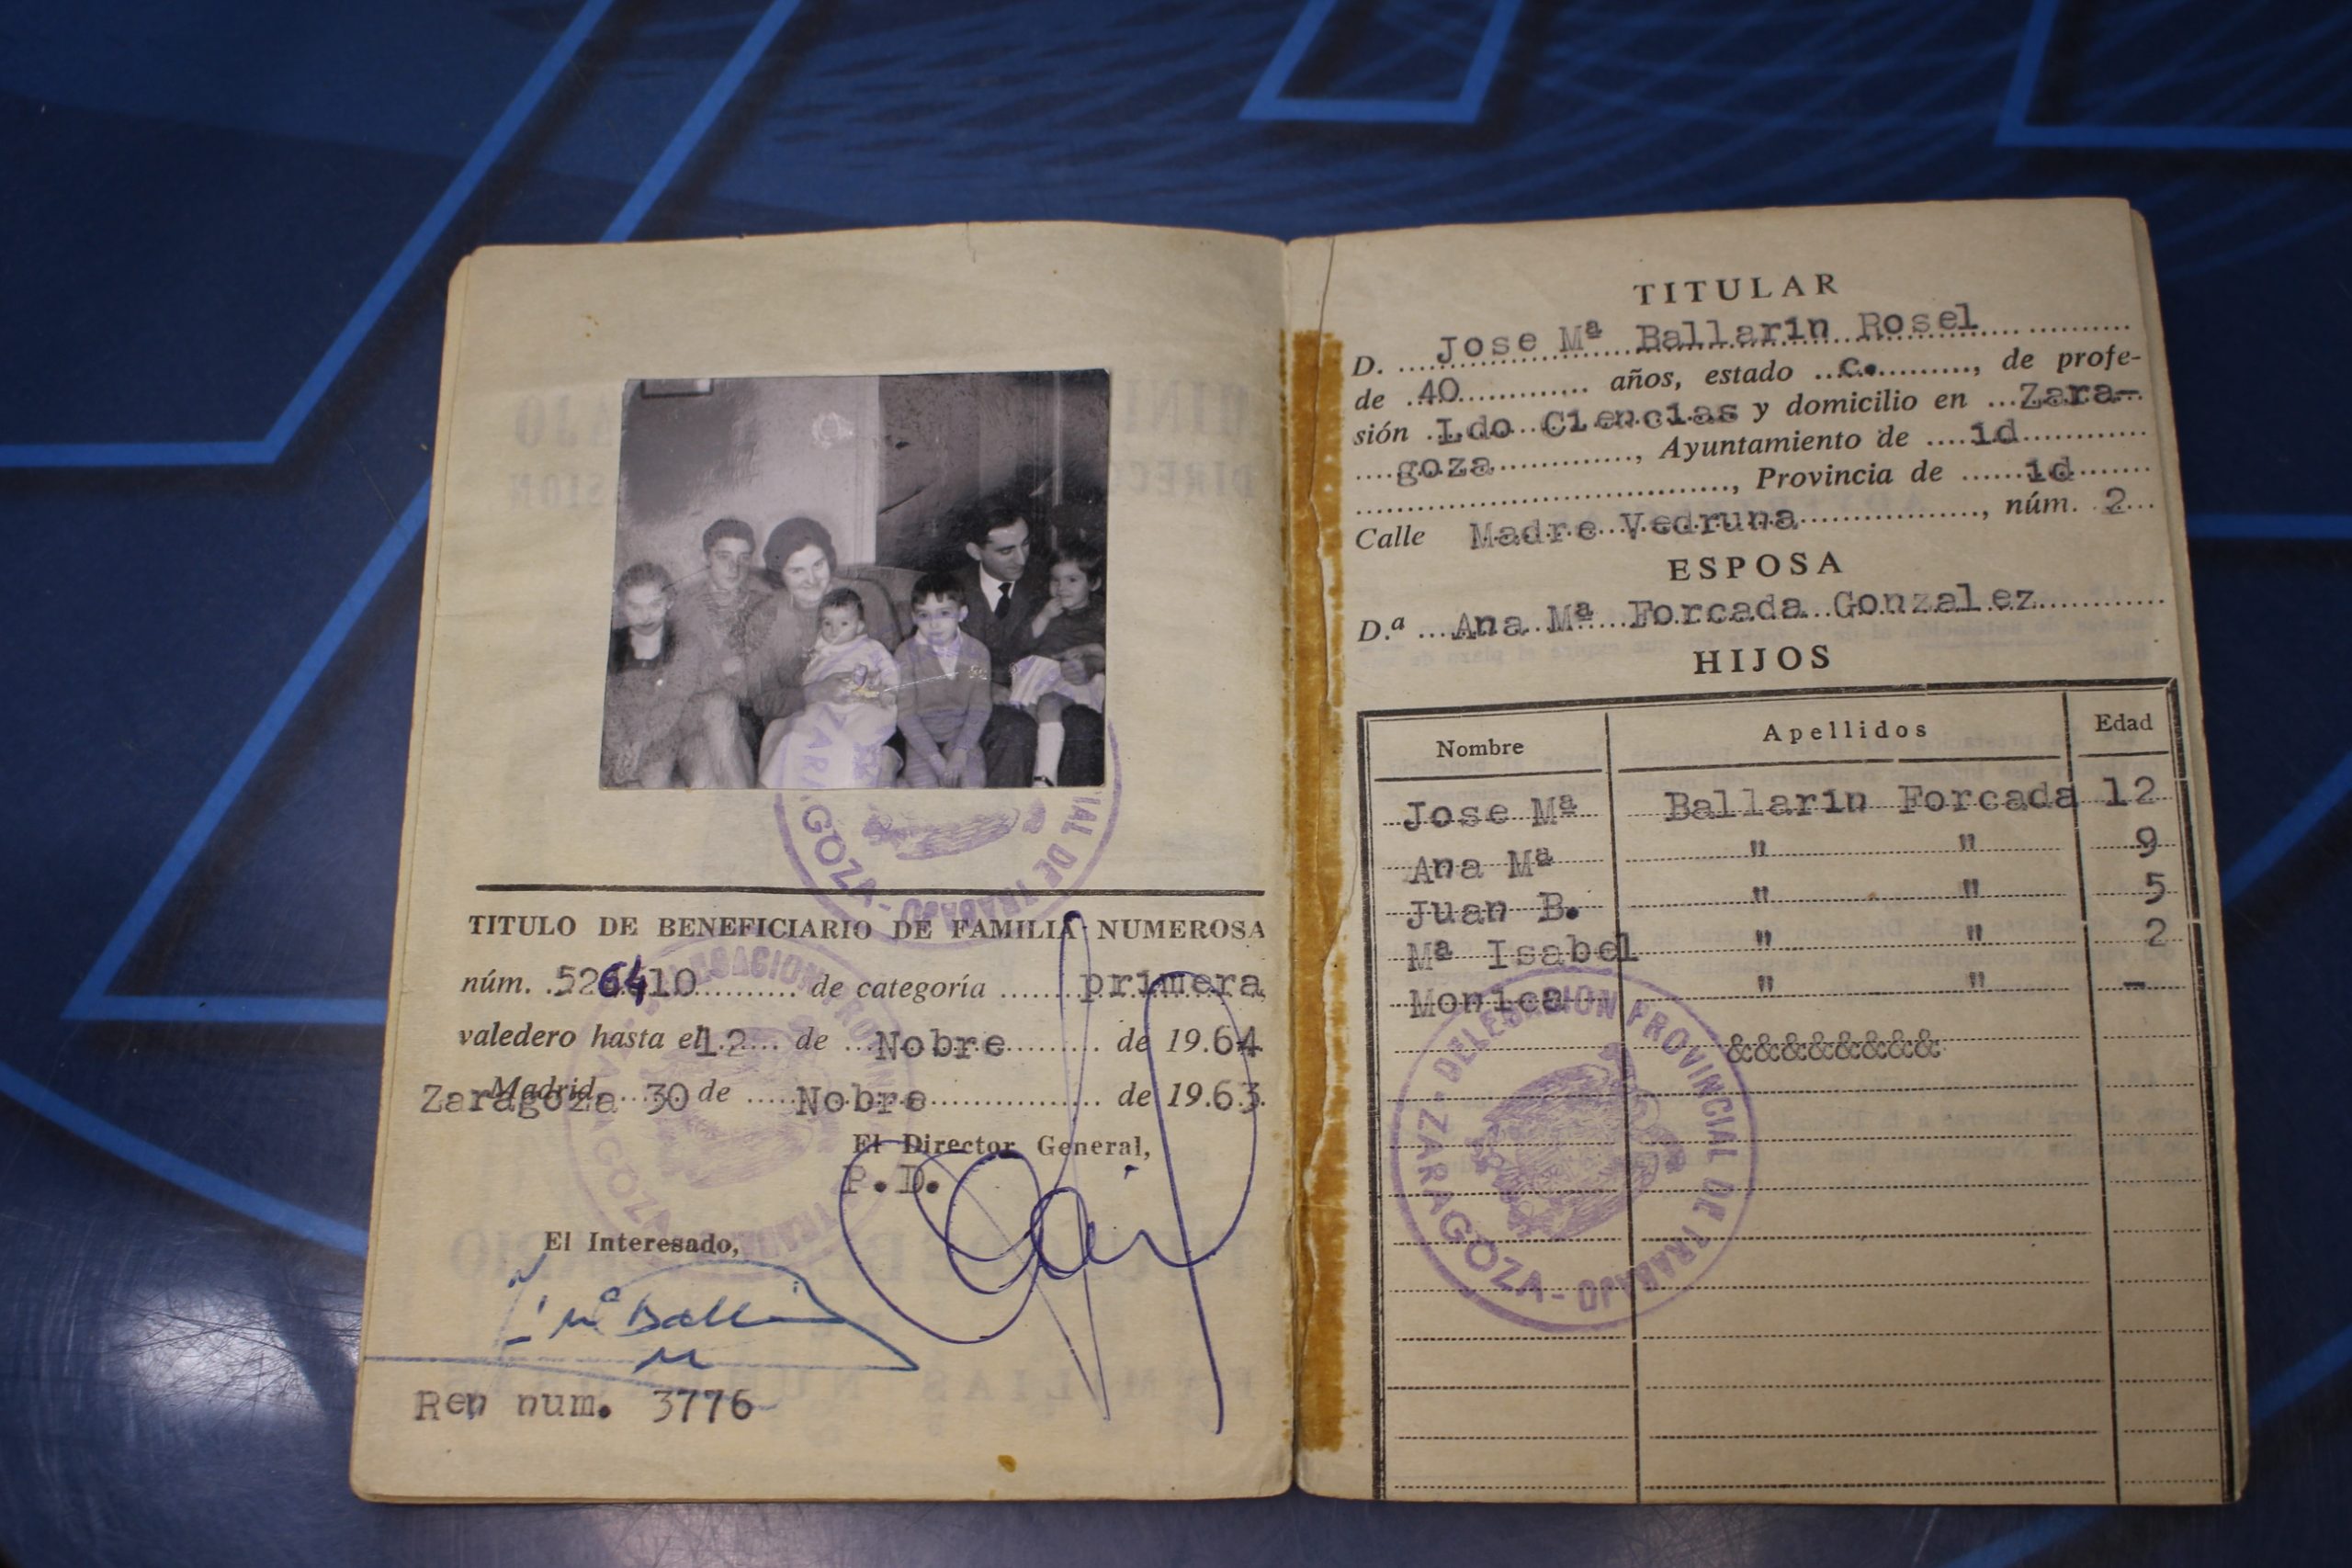 TITULO DE BENEFICIARIO DE FAMILIA NUMEROSA
núm. 526410 de categoría primera
valedero hasta el 12 de Nobre de 1964
Madrid, Zaragoza 30 de Nobre de 1963.
El Director General,
P.D.
El Interesado,
Ren num. 3776
DELEGACION PROVINCIAL DE TRABAJO - ZARAGOZA -
TITULAR
D. Jose Mª Ballarin Rosel
de 40 años, estado c., de profe-
sión Ldo Ciencias y domicilio en Zara-
goza, Ayuntamiento de id
, Provincia de id
Calle Madre Vedruna, núm. 2
ESPOSA
D.ª Ana Mª Forcada Gonzalez
HIJOS
Nombre Apellidos Edad
Jose Mª Ballarin Forcada 12
Ana Mª " " 9
Juan B. " " 5
Mª Isabel " " 2
Monica " " -
&&&&&&&&
DELEGACION PROVINCIAL DE TRABAJO - ZARAGOZA -